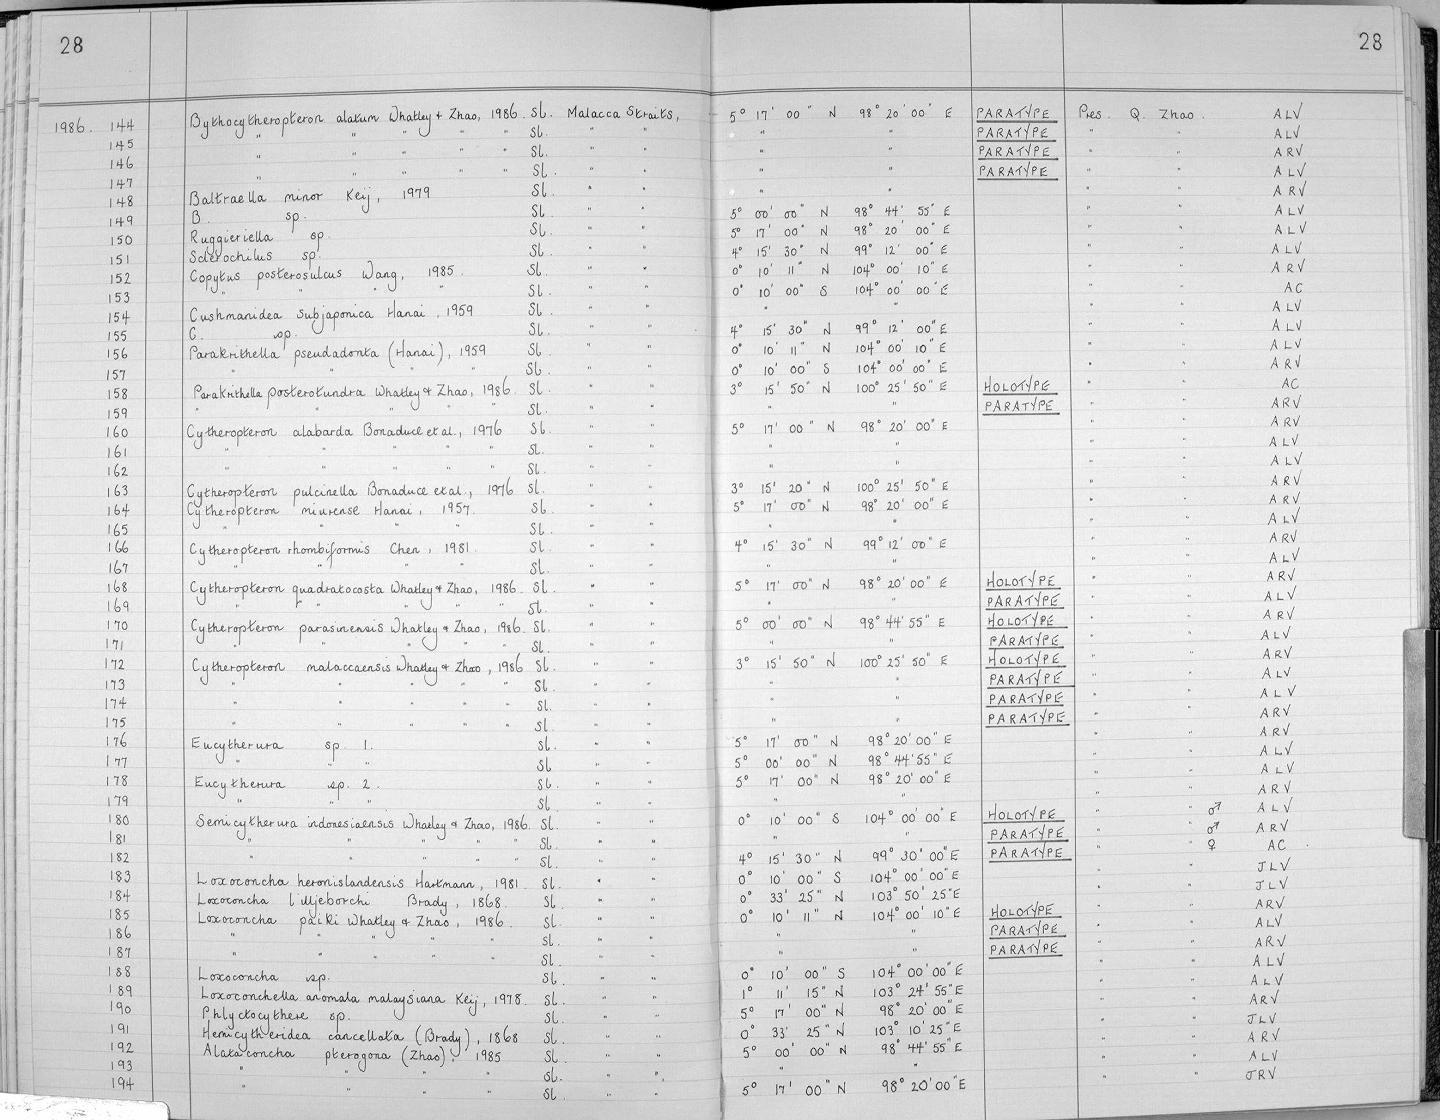 28 28
1986. 144 Bythocytheropteron alatum Whatley & Zhao, 1986. Sl. Malacca Straits, 5° 17' 00" N 98° 20' 00" E PARATYPE Pres. Q. Zhao. ALV
145 " " " " " Sl. " " " " PARATYPE " " ALV
146 " " " " " Sl. " " " " PARATYPE " " ARV
147 " " " " " Sl. " " " " PARATYPE " " ALV
148 Baltraella minor Keij, 1979 Sl. " " " " " " ARV
149 B. sp. Sl. " " 5° 00' 00" N 98° 44' 55" E " " ALV
150 Ruggieriella sp. Sl. " " 5° 17' 00" N 98° 20' 00" E " " ALV
151 Sclerochilus sp. Sl. " " 4° 15' 30" N 99° 12' 00" E " " ALV
152 Copytus posterosulcus Wang, 1985. Sl. " " 0° 10' 11" N 104° 00' 10" E " " ARV
153 " " " " Sl. " " 0° 10' 00" S 104° 00' 00" E " " AC
154 Cushmanidea subjaponica Hanai, 1959 Sl. " " " " " " ALV
155 C. sp. Sl. " " 4° 15' 30" N 99° 12' 00" E " " ALV
156 Parakrithella pseudadonta (Hanai), 1959 Sl. " " 0° 10' 11" N 104° 00' 10" E " " ALV
157 " " " " Sl. " " 0° 10' 00" S 104° 00' 00" E " " ARV
158 Parakrithella posterotundra Whatley & Zhao, 1986. Sl. " " 3° 15' 50" N 100° 25' 50" E HOLOTYPE " " AC
159 " " " " " Sl. " " " " PARATYPE " " ARV
160 Cytheropteron alabarda Bonaduce et al., 1976 Sl. " " 5° 17' 00" N 98° 20' 00" E " " ARV
161 " " " " " Sl. " " " " " " ALV
162 " " " " " Sl. " " " " " " ALV
163 Cytheropteron pulcinella Bonaduce et al., 1976 Sl. " " 3° 15' 20" N 100° 25' 50" E " " ARV
164 Cytheropteron miurense Hanai, 1957. Sl. " " 5° 17' 00" N 98° 20' 00" E " " ARV
165 " " " " Sl. " " " " " " ALV
166 Cytheropteron rhombiformis Chen, 1981. Sl. " " 4° 15' 30" N 99° 12' 00" E " " ARV
167 " " " " Sl. " " " " " " ALV
168 Cytheropteron quadratocosta Whatley & Zhao, 1986. Sl. " " 5° 17' 00" N 98° 20' 00" E HOLOTYPE " " ARV
169 " " " " " Sl. " " " " PARATYPE " " ALV
170 Cytheropteron parasinensis Whatley & Zhao, 1986. Sl. " " 5° 00' 00" N 98° 44' 55" E HOLOTYPE " " ARV
171 " " " " " Sl. " " " " PARATYPE " " ALV
172 Cytheropteron malaccaensis Whatley & Zhao, 1986 Sl. " " 3° 15' 50" N 100° 25' 50" E HOLOTYPE " " ARV
173 " " " " " Sl. " " " " PARATYPE " " ALV
174 " " " " " Sl. " " " " PARATYPE " " ALV
175 " " " " " Sl. " " " " PARATYPE " " ARV
176 Eucytherura sp. 1. Sl. " " 5° 17' 00" N 98° 20' 00" E " " ARV
177 " " " Sl. " " 5° 00' 00" N 98° 44' 55" E " " ALV
178 Eucytherura sp. 2. Sl. " " 5° 17' 00" N 98° 20' 00" E " " ALV
179 " " " Sl. " " " " " " ARV
180 Semicytherura indonesiaensis Whatley & Zhao, 1986. Sl. " " 0° 10' 00" S 104° 00' 00" E HOLOTYPE " " ♂ ALV
181 " " " " " Sl. " " " " PARATYPE " " ♂ ARV
182 " " " " " Sl. " " 4° 15' 30" N 99° 30' 00" E PARATYPE " " ♀ AC
183 Loxoconcha heronislandensis Hartmann, 1981. Sl. " " 0° 10' 00" S 104° 00' 00" E " " JLV
184 Loxoconcha lilljeborchi Brady, 1868. Sl. " " 0° 33' 25" N 103° 50' 25" E " " JLV
185 Loxoconcha paiki Whatley & Zhao, 1986. Sl. " " 0° 10' 11" N 104° 00' 10" E HOLOTYPE " " ARV
186 " " " " " Sl. " " " " PARATYPE " " ALV
187 " " " " " Sl. " " " " PARATYPE " " ARV
188 Loxoconcha sp. Sl. " " 0° 10' 00" S 104° 00' 00" E " " ALV
189 Loxoconchella anomala malaysiana Keij, 1978. Sl. " " 1° 11' 15" N 103° 24' 55" E " " ALV
190 Phlyctocythere sp. Sl. " " 5° 17' 00" N 98° 20' 00" E " " ARV
191 Hemicytheridea cancellata (Brady), 1868 Sl. " " 0° 33' 25" N 103° 10' 25" E " " JLV
192 Alataconcha pterogona (Zhao), 1985 Sl. " " 5° 00' 00" N 98° 44' 55" E " " ARV
193 " " " " Sl. " " " " " " ALV
194 " " " " Sl. " " 5° 17' 00" N 98° 20' 00" E " " JRV